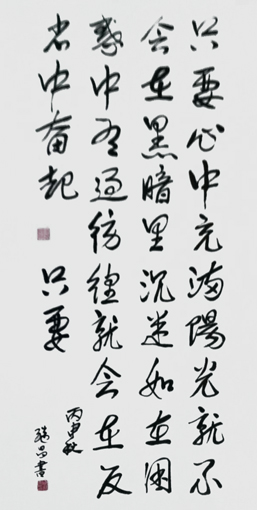 只要心中充满陽光就不
会在黑暗里沉迷如在困
惑中有過彷徨就会在反
省中奮起 只要
丙申秋
昌書